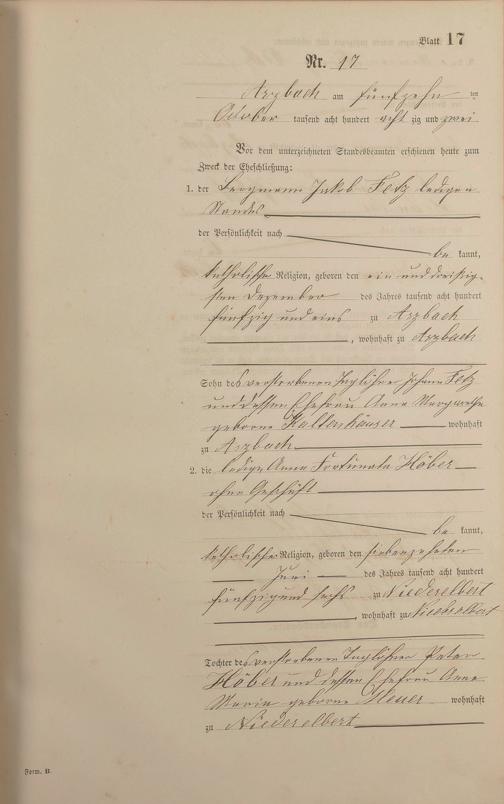 Blatt 17
Nr. 17
Arzbach am fünfzehn ten
October tausend acht hundert acht zig und zwei
Vor dem unterzeichneten Standesbeamten erschienen heute zum
Zweck der Eheschließung:
1. der Bergmann Jakob Fetz ledigen
Standes
der Persönlichkeit nach
be kannt,
katholischer Religion, geboren den ein und dreißig-
sten Dezember des Jahres tausend acht hundert
fünfzig und eins zu Arzbach
, wohnhaft zu Arzbach
Sohn des verstorbenen Taglöhner Johann Fetz
und dessen Ehefrau Anna Margaretha
geborne Kaltenhäuser wohnhaft
zu Arzbach
2. die ledige Anna Fortunata Höber
ohne Geschäft
der Persönlichkeit nach
be kannt,
katholischer Religion, geboren den siebenzehnten
Juni des Jahres tausend acht hundert
fünfzig und sechs zu Niederelbert
, wohnhaft zu Niederelbert
Tochter des verstorbenen Taglöhner Peter
Höber und dessen Ehefrau Anna
Maria geborne Meuer wohnhaft
zu Niederelbert
Form. B.